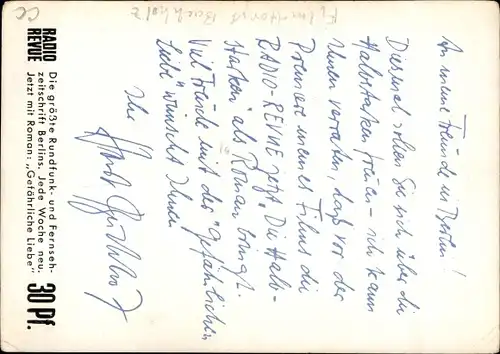 An meine Freunde in Berlin!
Diesmal sollen Sie sich über die
Halbstarken freuen – ich kann
Ihnen verraten, daß vor der
Premiere meines Films die
RADIO-REVUE jetzt „Die Halb-
starken" als Roman bringt.
Viel Freude mit der „Gefährlichen
Liebe" wünscht Ihnen
Ihr Horst Buchholz
RADIO
REVUE
Die größte Rundfunk- und Fernseh-
zeitschrift Berlins. Jede Woche neu.
Jetzt mit Roman: „Gefährliche Liebe"
30 Pf.
Buchholz
CC